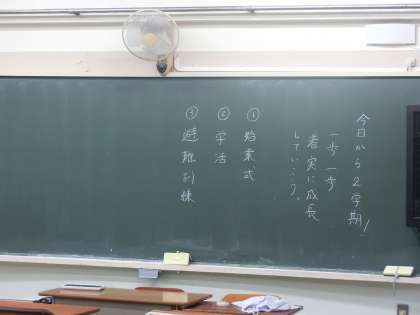 今日から2学期!
一歩一歩
着実に成長
していこう。
① 始業式
② 学活
③ 避難訓練